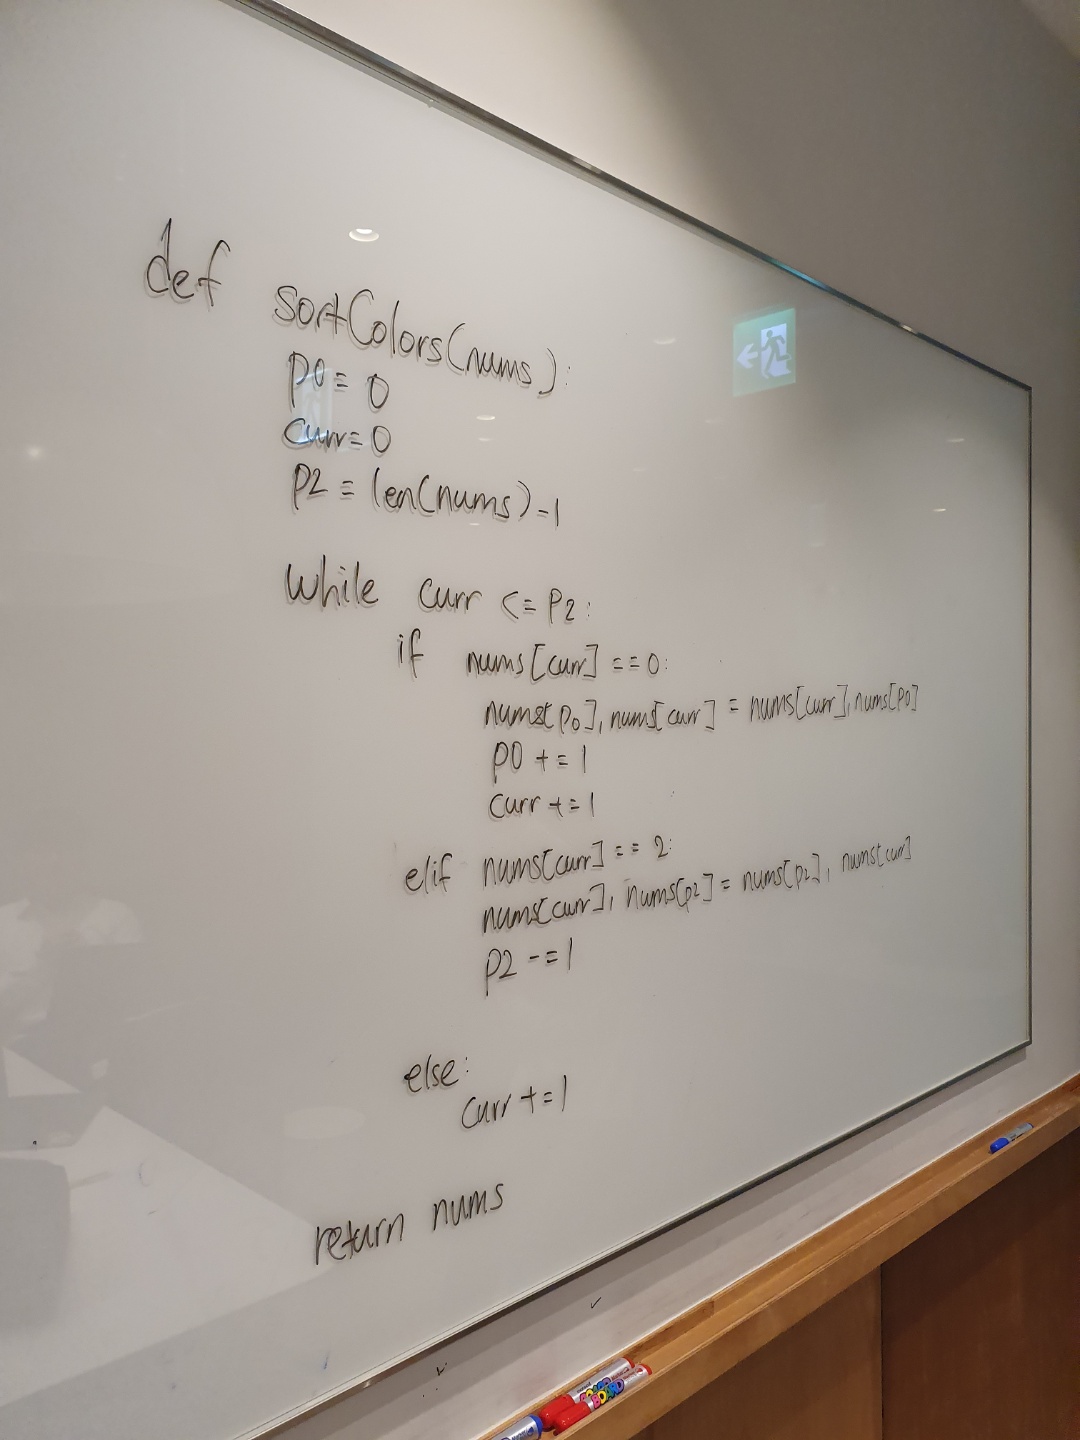 def sortColors(nums):
p0 = 0
curr = 0
p2 = len(nums) - 1
while curr <= p2:
if nums[curr] == 0:
nums[p0], nums[curr] = nums[curr], nums[p0]
p0 += 1
curr += 1
elif nums[curr] == 2:
nums[curr], nums[p2] = nums[p2], nums[curr]
p2 -= 1
else:
curr += 1
return nums
BOARD